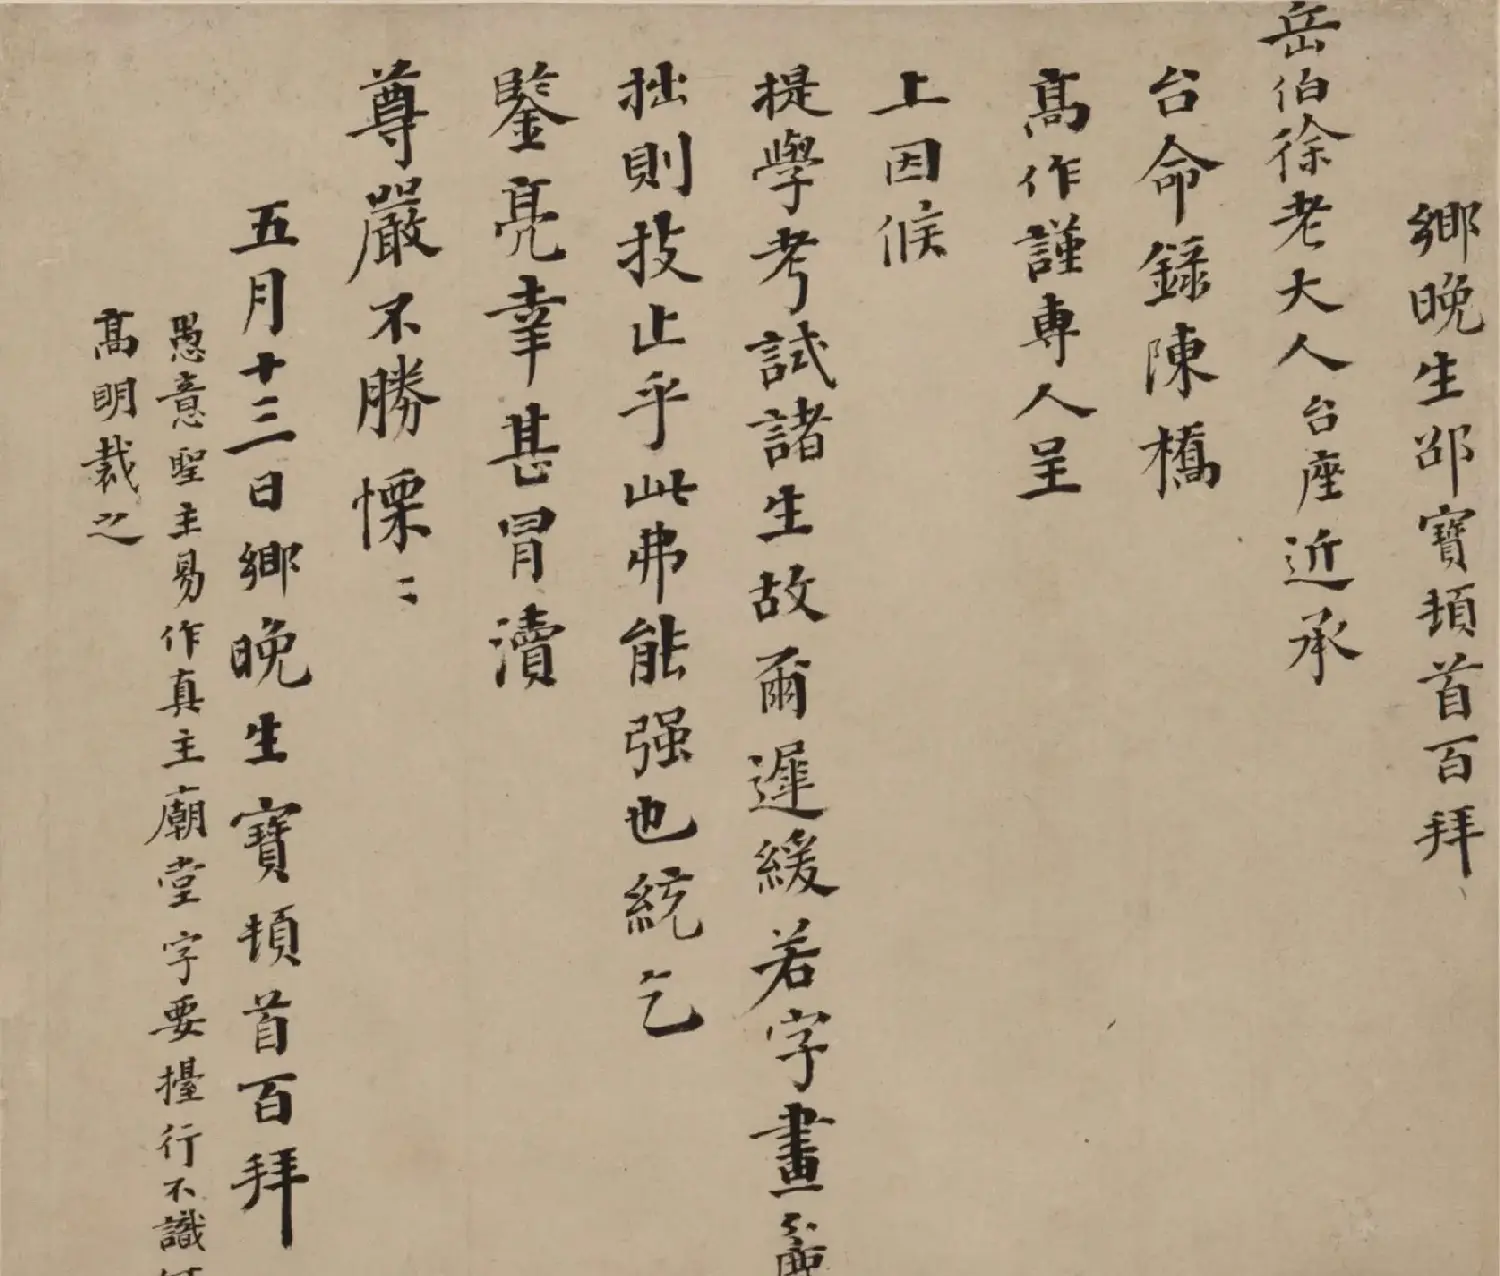 鄉晚生邵寶頓首百拜
岳伯徐老大人台座近承
台命錄陳橋
高作謹專人呈
上因候
提學考試諸生故爾遲緩若字畫
拙則技止乎此弗能强也統乞
鑒亮幸甚冒瀆
尊嚴不勝慄〻
五月十三日鄉晚生寶頓首百拜
愚意聖主易作真主廟堂字要擡行不識
高明裁之